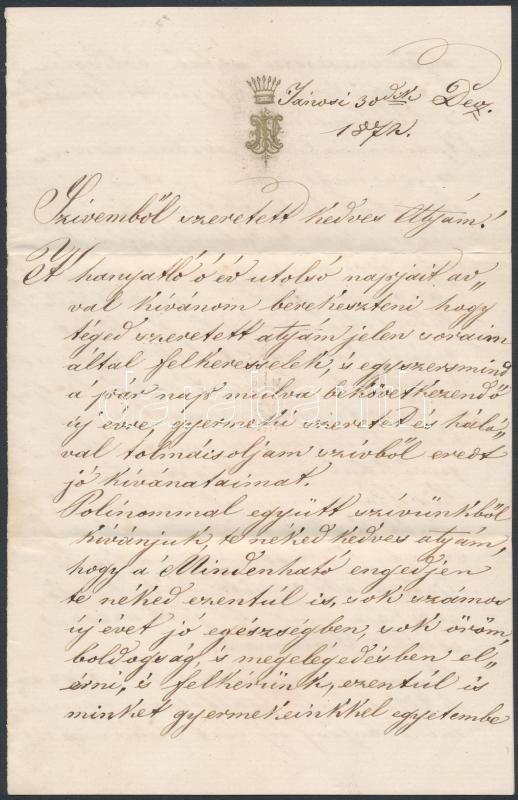 Jánosi 30dik Dez.
1872.
Szívemből szeretett kedves Atyám!
A hanyatló ó év utolsó napjait av„
val kívánom berekeszteni hogy
téged szeretett atyám jelen soraim
által felkeresselek, s egyszersmind
a pár nap múlva bekövetkezendő
új évre, gyermeki szeretet és hálá„
val tolmácsoljam szívből eredt
jó kívánataimat.
Polinommal együtt szívünkből
kívánjuk, te néked kedves atyám,
hogy a Mindenható engedjen
te néked ezentúl is, sok számos
új évet jó egészségben, sok öröm,
boldogság, s megelégedésben el„
érni, s felkérünk, ezentúl is
minket gyermekeinkkel egyetembe